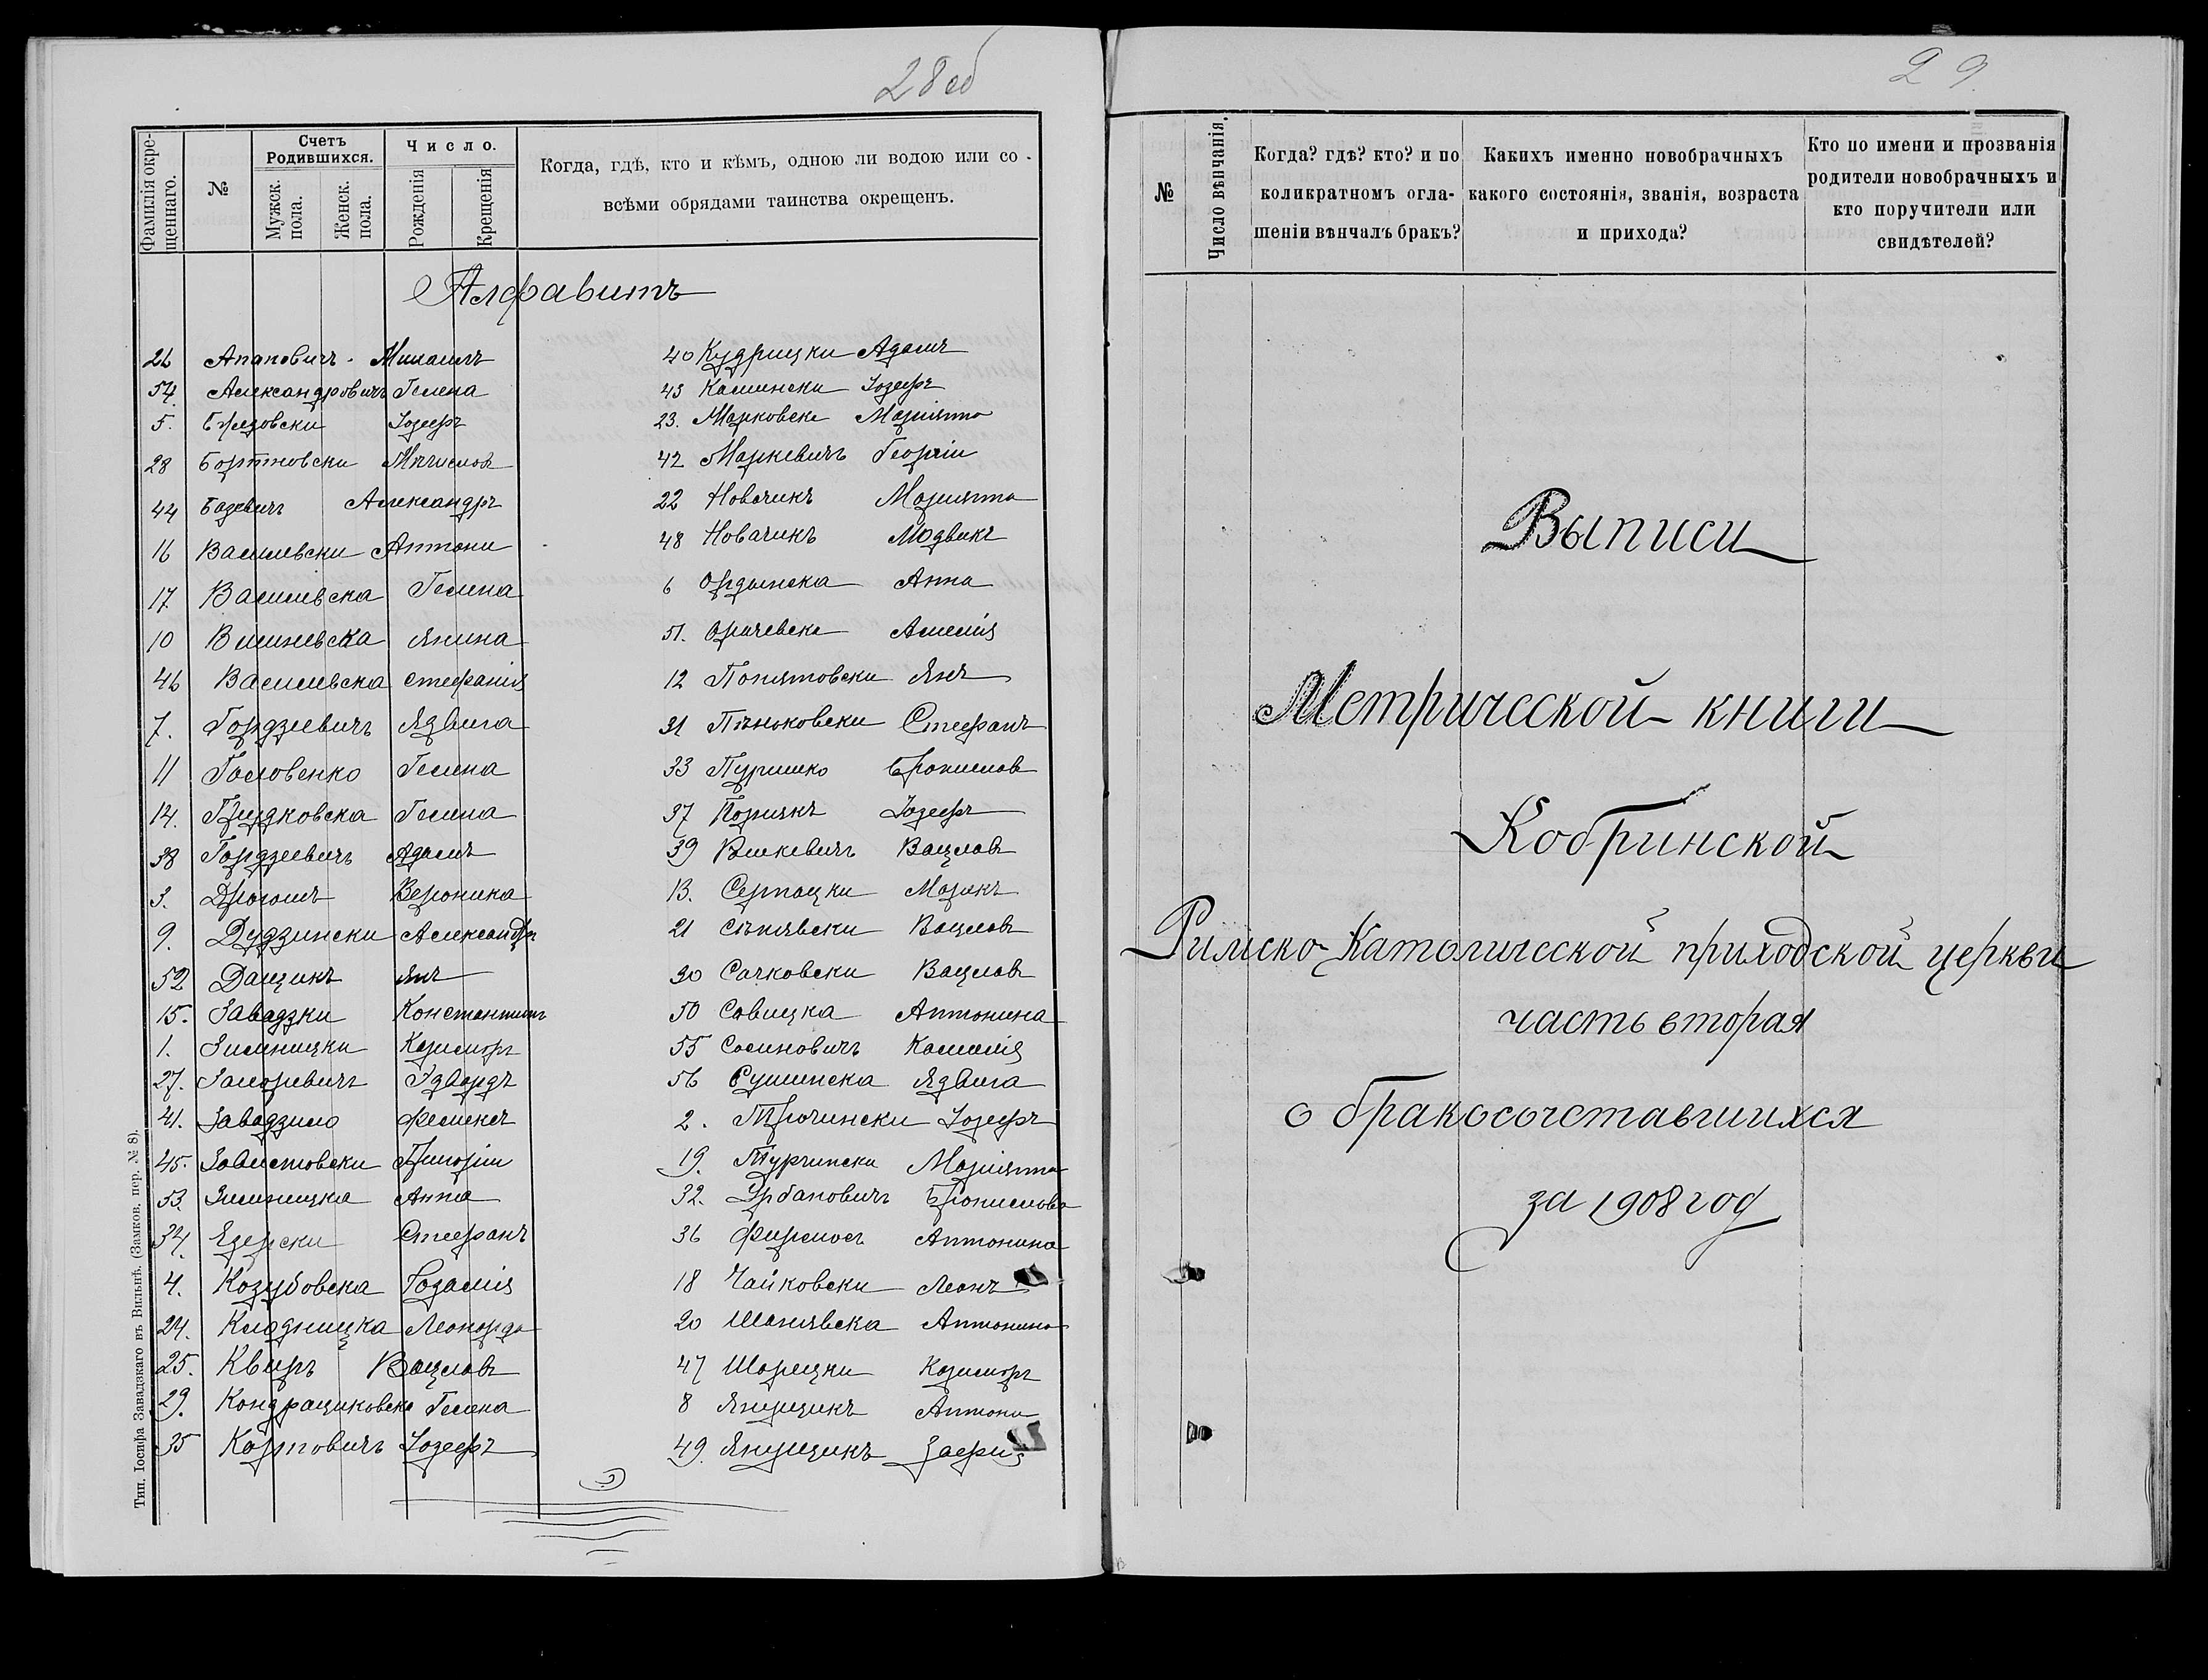 28 об
Фамилія окрещеннаго.
№
Счетъ Родившихся.
Мужск. пола.
Женск. пола.
Число.
Рожденія
Крещенія
Когда, гдѣ, кто и кѣмъ, одною ли водою или со
всѣми обрядами таинства окрещенъ.
Алфавитъ
26 Апановичъ Михаилъ
54 Александровичъ Гелена
5. Бржезовски Іозефъ
28 Бортновски Мѣчиславъ
44 Базевичъ Александръ
16 Василевски Антони
17 Василевска Гелена
10 Вишневска Янина
46 Василевска Стефанія
7. Гордзіевичъ Ядвига
11 Головенко Гелена
14. Грудковска Гелена
38 Гордзеевичъ Адамъ
3. Дрогошъ Вероника
9. Дудзински Александръ
52 Данцикъ Янъ
15. Завадзки Константинъ
1. Зимницки Казиміръ
27. Заморевичъ Эдвардъ
41. Завадзило Феликсъ
45. Завистовски Григорій
53. Зимницка Анна
34. Езерски Стефанъ
4. Козубовска Розалія
24. Клодницка Леонарда
25. Квиръ Вацлавъ
29. Кондрациковска Гелена
35 Картовичъ Іозефъ
40 Кудрицки Адамъ
43 Камински Іозефъ
23. Марковска Маріянна
42 Маркевичъ Георгій
22 Новачикъ Маріянна
48 Новачикъ Людвикъ
6 Ордынска Анна
51. Орачевска Амелія
12 Понятовски Янъ
31 Пѣньковски Стефанъ
33 Пуришко Брониславъ
37 Порицкъ Іозефъ
39 Рымкевичъ Вацлавъ
13. Серпацки Марекъ
21 Сѣнявски Вацлавъ
30 Сачковски Вацлавъ
50 Савицка Антонина
55 Сасиновичъ Камилія
56 Сушинска Ядвига
2. Трочински Іозефъ
19. Турчинска Маріянна
32. Урбановичъ Бронислава
36 Фирсюсъ Антонина
18 Чайковски Леонъ
20 Шанявска Антонина
47 Шорецки Казиміръ
8 Янущикъ Антони
49. Янущикъ Зофія
Тип. Іосифа Завадзкаго въ Вильнѣ. (Замков. пер. № 8).
29
№
Число вѣнчанія.
Когда? гдѣ? кто? и по
коликратномъ огла-
шеніи вѣнчалъ бракъ?
Какихъ именно новобрачныхъ
какого состоянія, званія, возраста
и прихода?
Кто по имени и прозванія
родители новобрачныхъ и
кто поручители или
свидѣтелей?
Выписи
Метрической книги
Кобринской
Римско-Католической приходской церкви
часть вторая
о бракосочетавшихся
за 1908 год